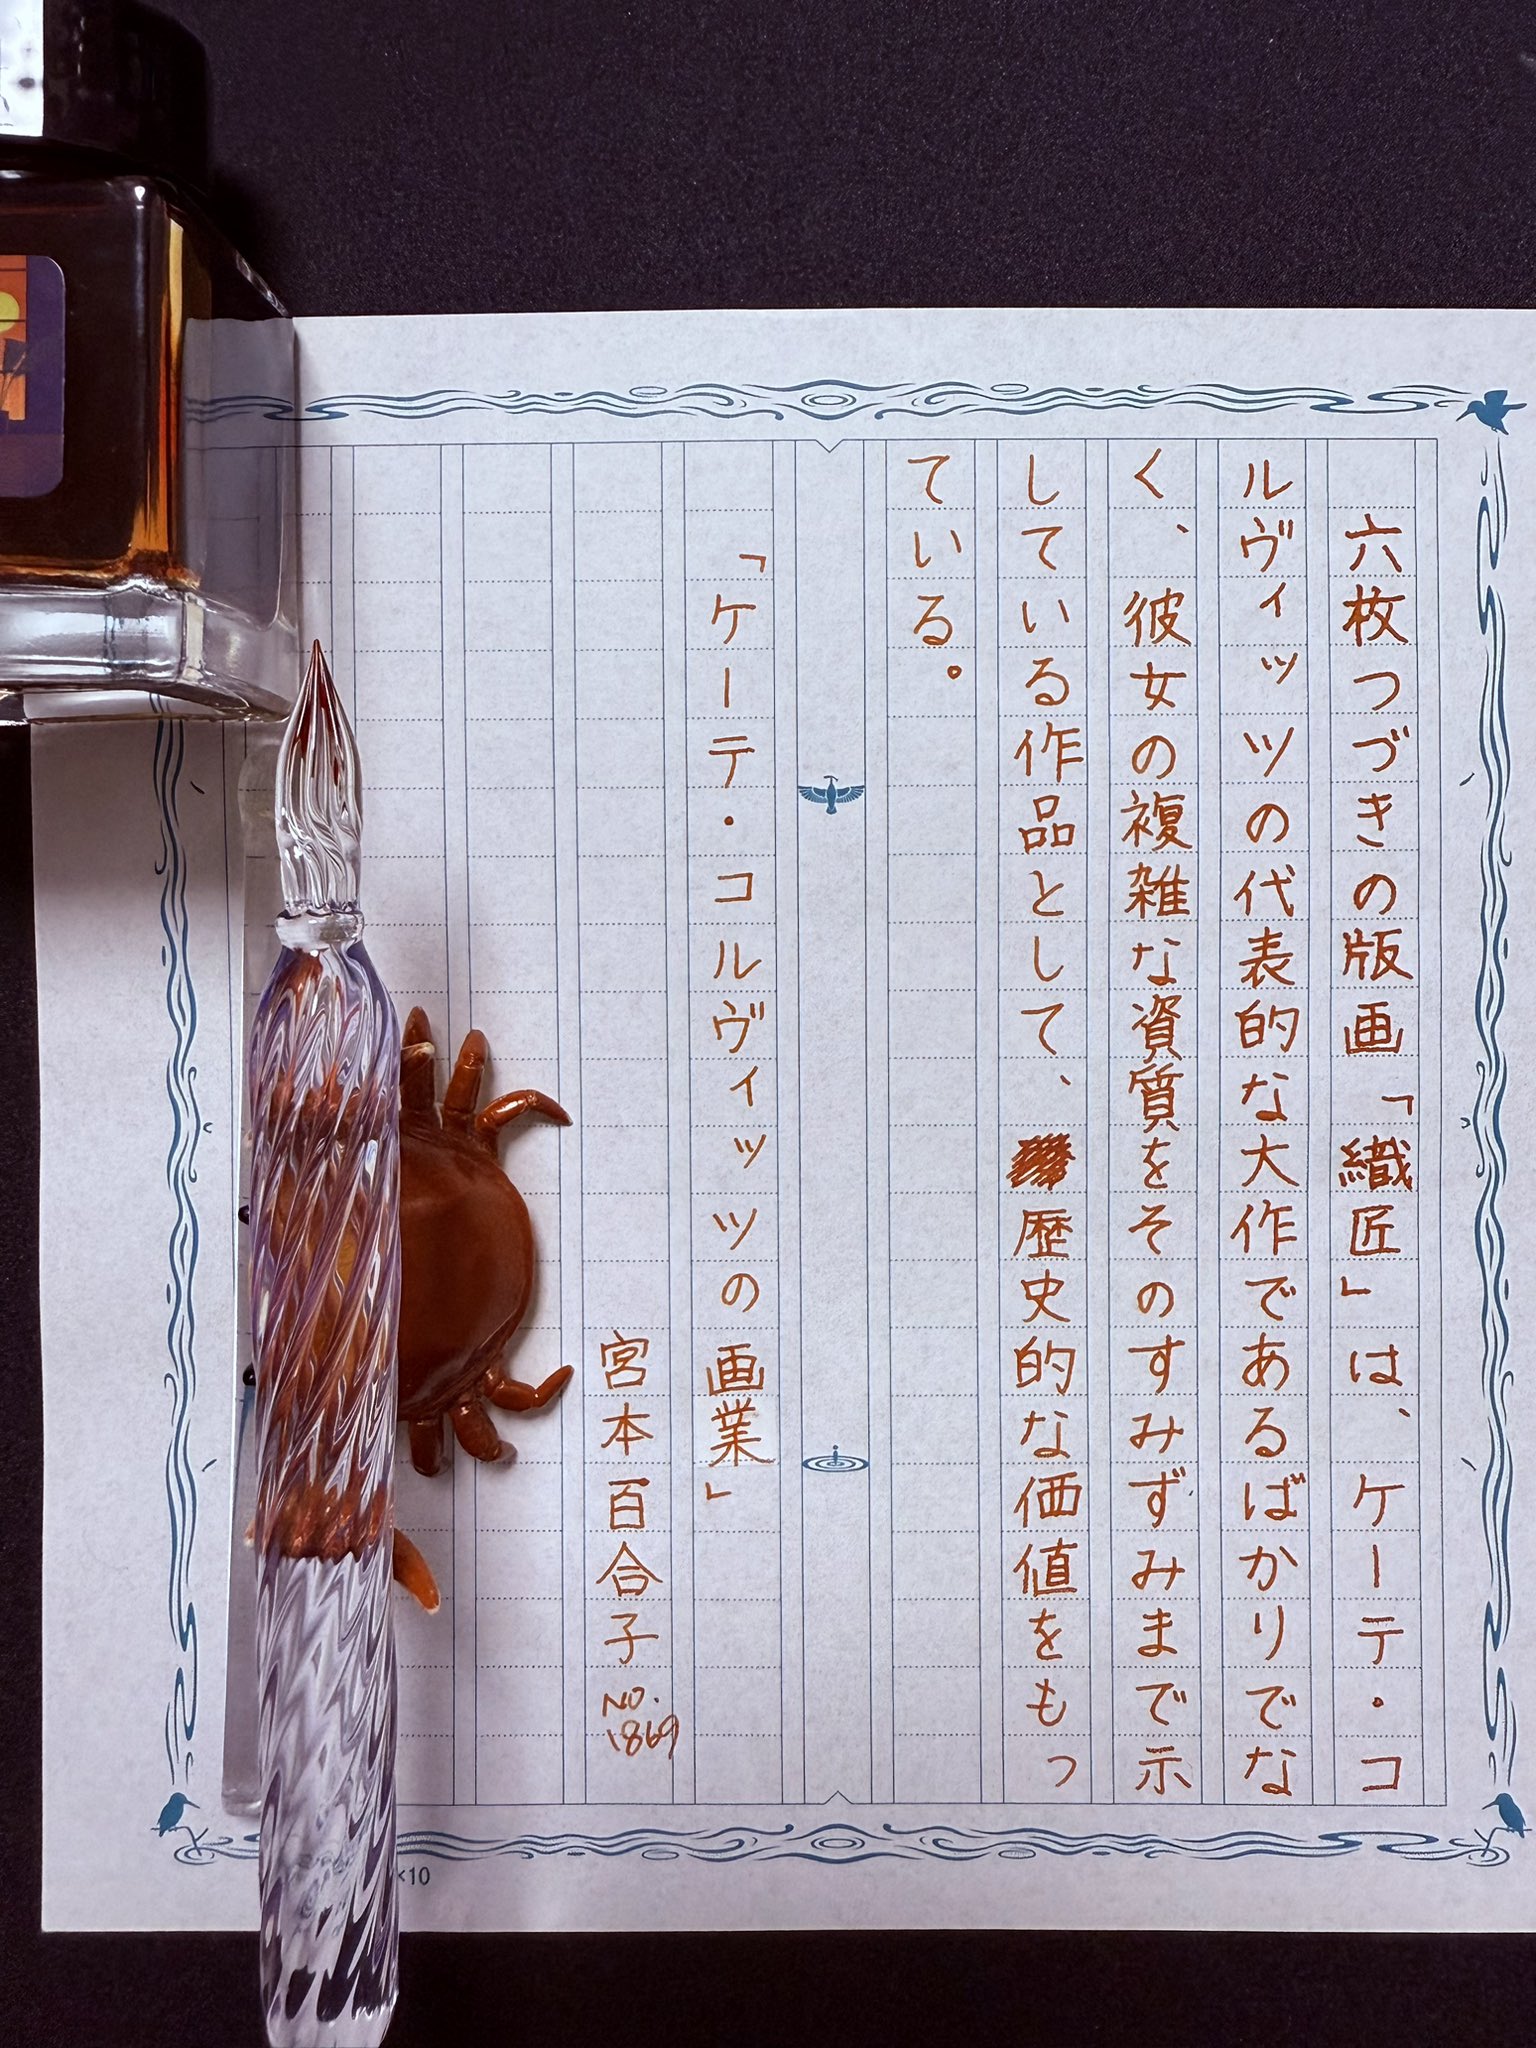 六枚つづきの版画「織匠」は、ケーテ・コ
ルヴィッツの代表的な大作であるばかりでな
く、彼女の複雑な資質をそのすみずみまで示
している作品として、歴史的な価値をもっ
ている。
「ケーテ・コルヴィッツの画業」
宮本百合子
NO.
1869
×10